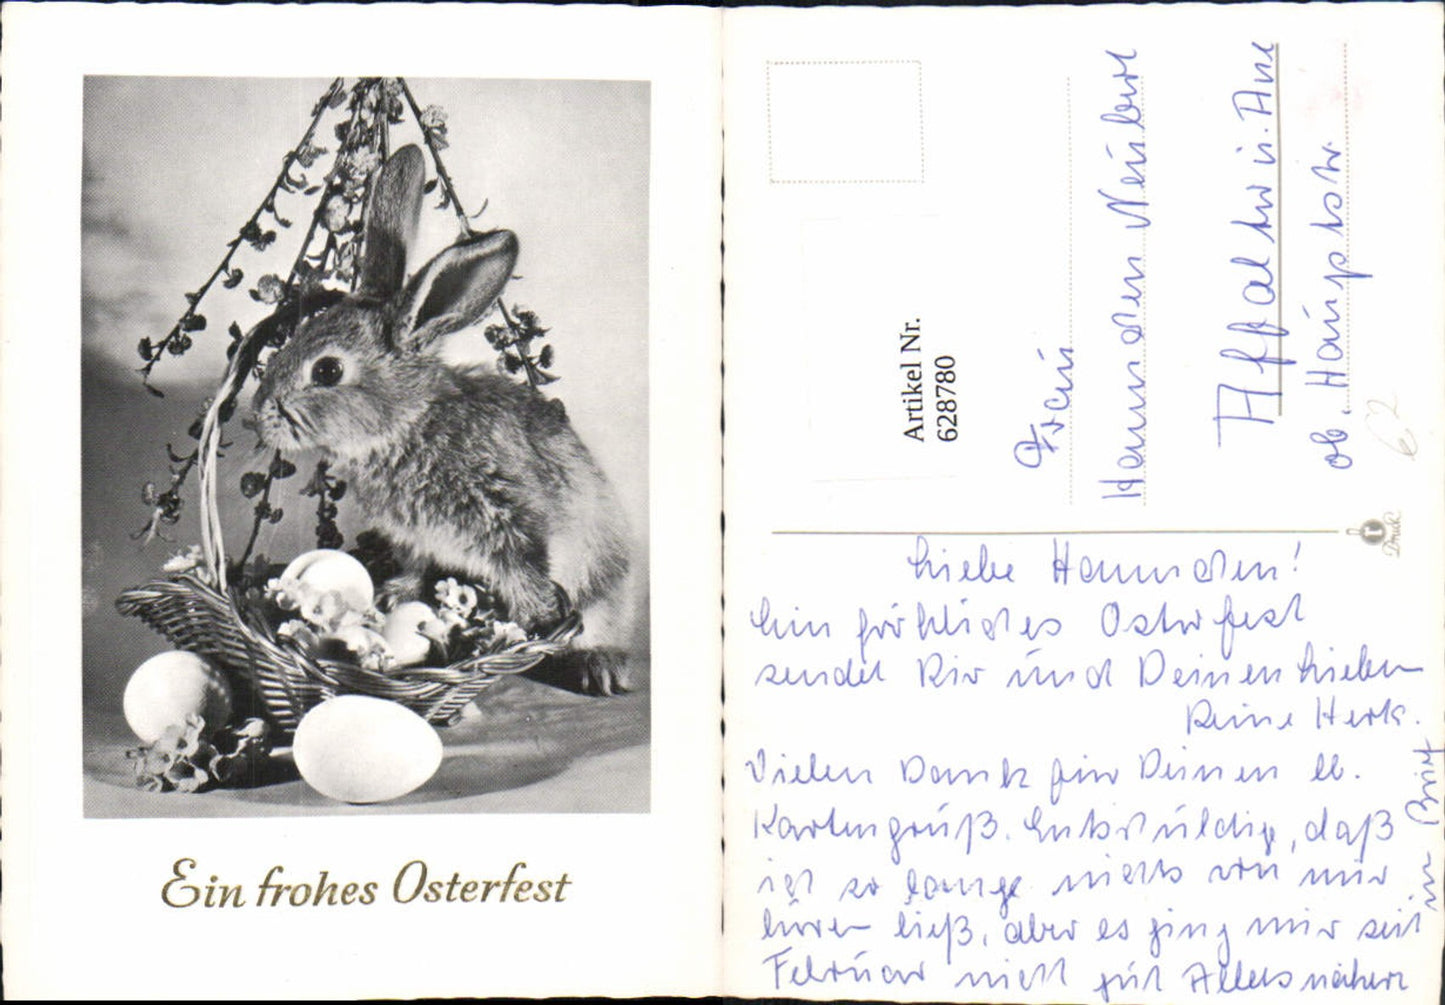 Ein frohes Osterfest
Artikel Nr.
628780
Frau
Hannchen Neubert
Affalter ü. Aue
ob. Hauptstr.
62
Druck
Liebe Hannchen!
Ein fröhliches Osterfest
sendet Dir und Deinen Lieben
Deine Herta.
Vielen Dank für Deinen lb.
Kartengruß. Entschuldige, daß
ich so lange nichts von mir
hören ließ, aber es ging mir seit
Februar nicht gut Alles nähere
im Brief